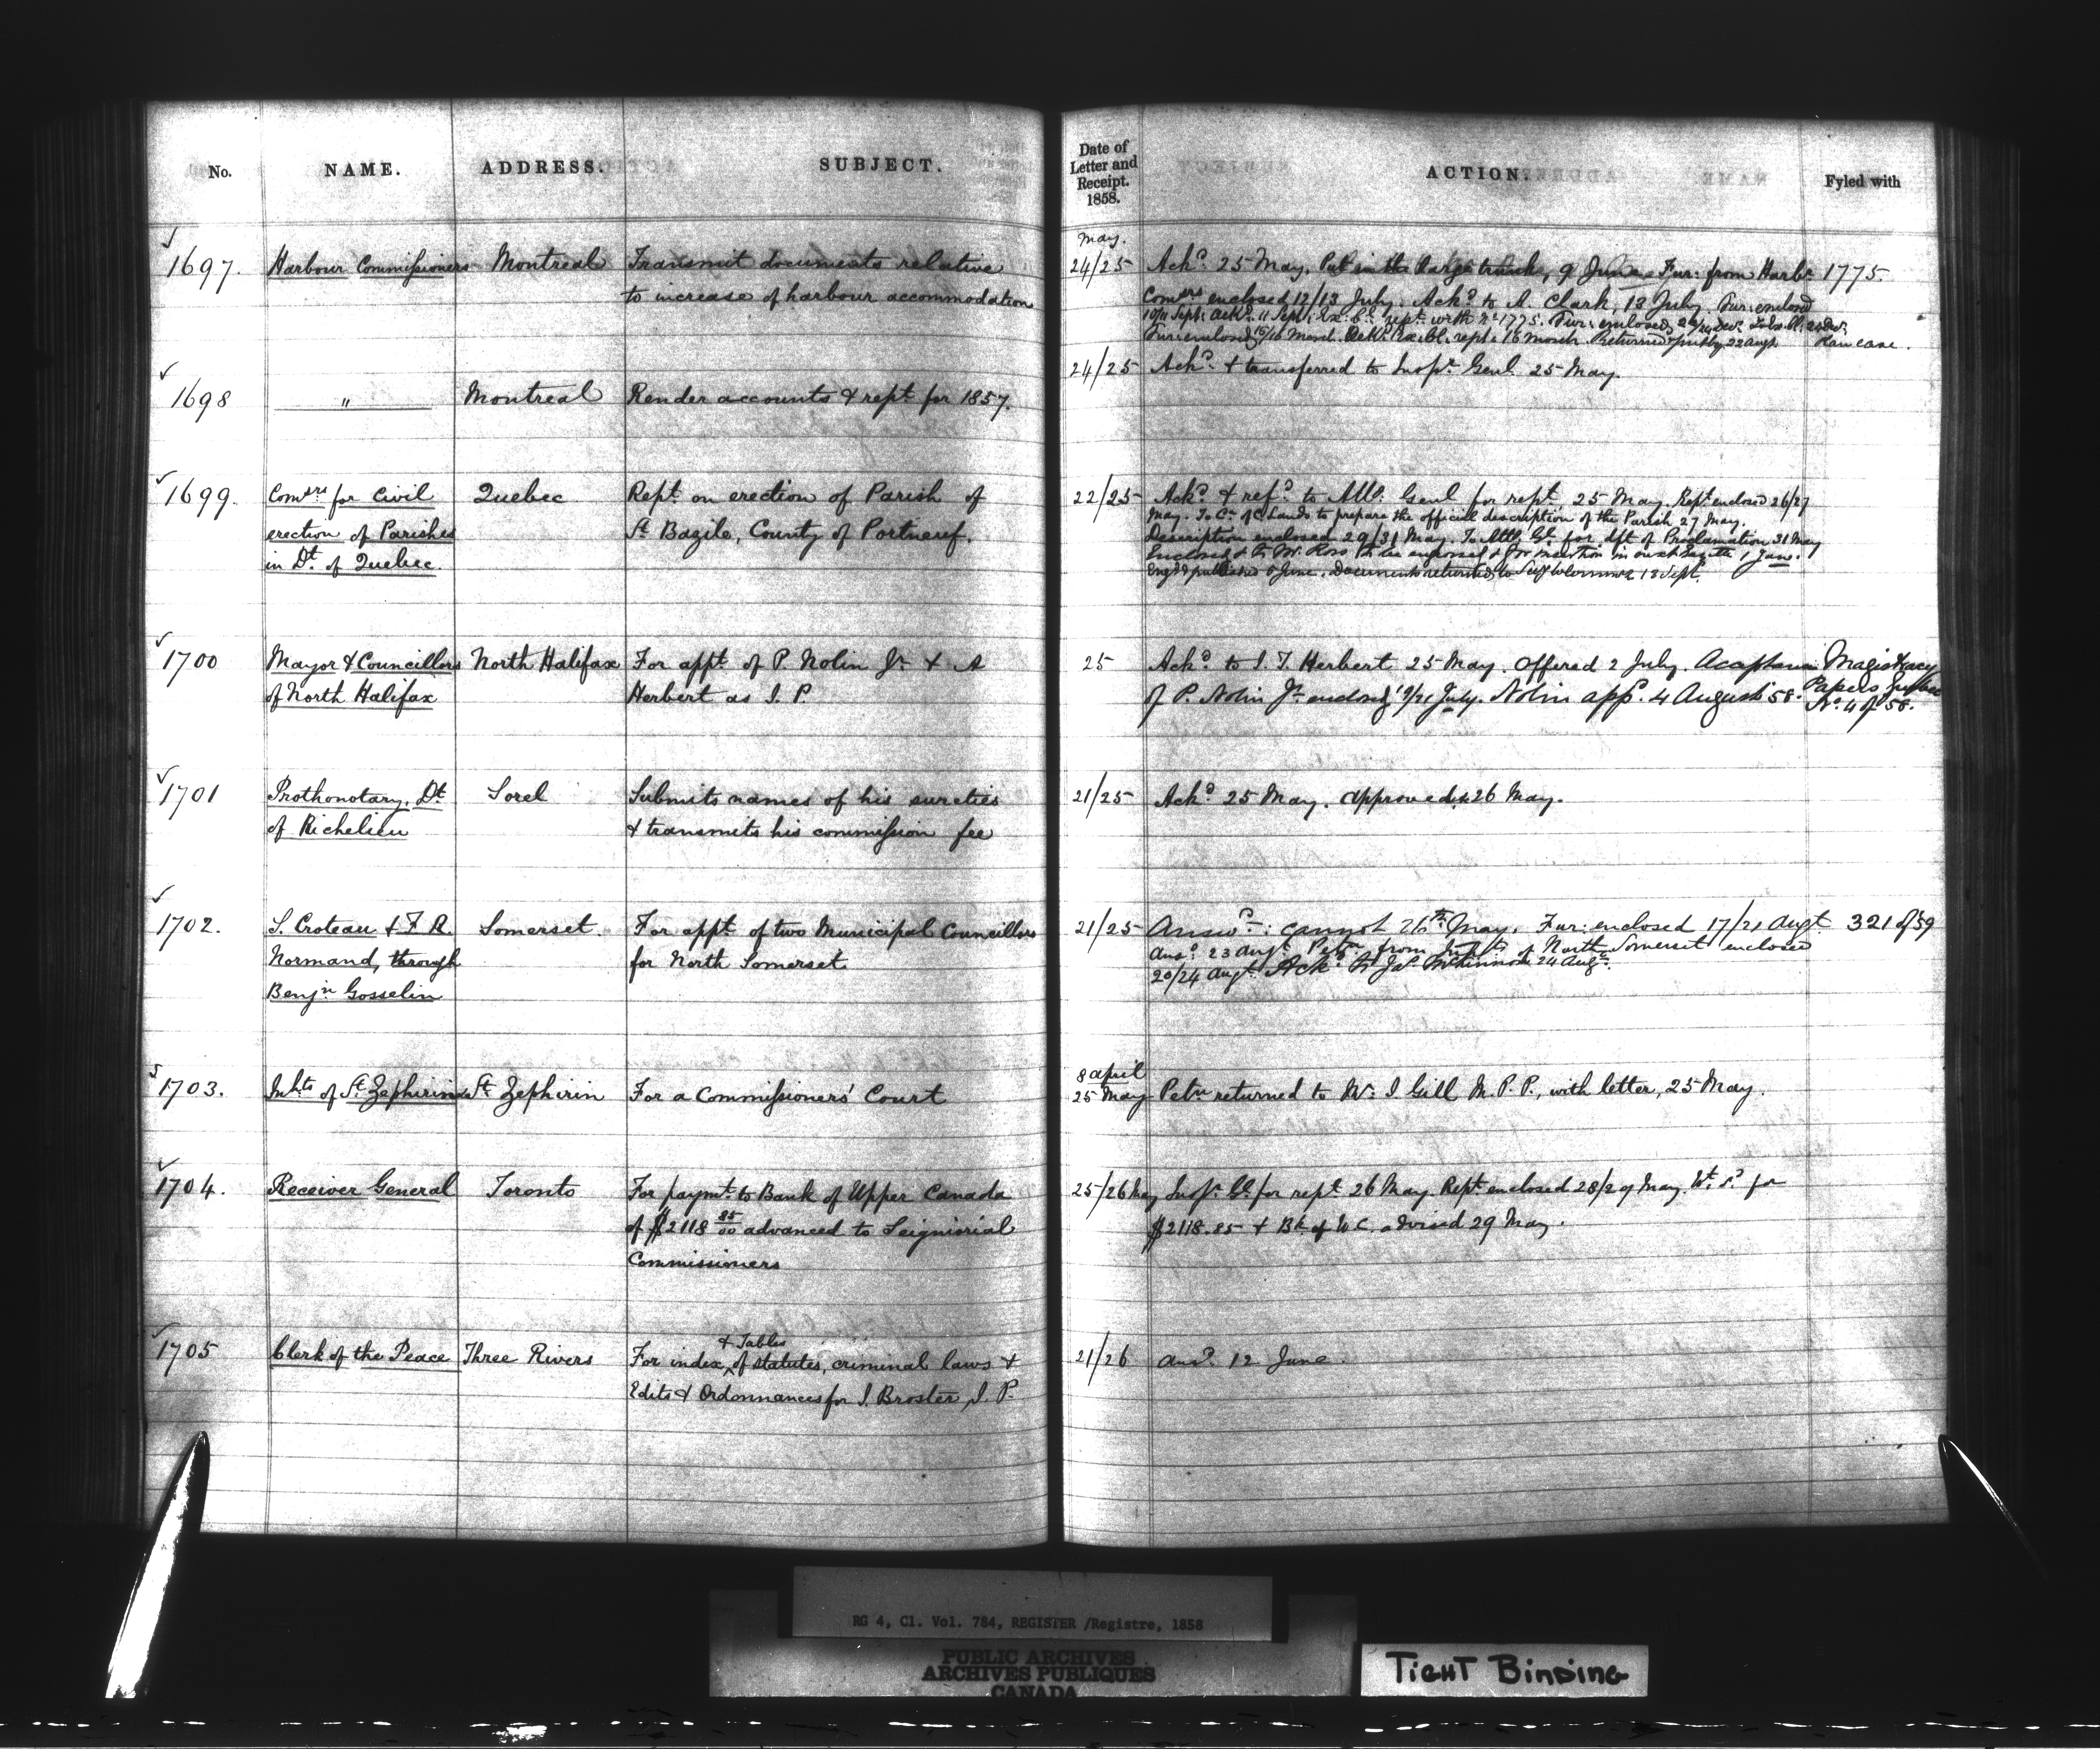 No. NAME. ADDRESS. SUBJECT. Date of Letter and Receipt. 1858. ACTION. Fyled with
May.
1697. Harbour Commissioners Montreal Transmit documents relative 24/25 Ackd 25 May. Put in the large trunk, 9 June Fur: from Harbr 1775.
to increase of harbour accommodation Comers enclosed 12/13 July. Ackd to A. Clark, 13 July. Fur: enclosed
10/11 Sept: Ackd 11 Sept: Ex. Cl. rept with No 1775. Fur: enclosed
Fur: enclosed 15/16 March. Ackd Ex. Cl. rept: 16 March. Returned 22 Augt.
1698 " Montreal Render accounts & rept for 1857. 24/25 Ackd & transferred to Inspr Genl 25 May.
1699. Comsrs for Civil Quebec Rept on erection of Parish of 22/25 Ackd & refd to Atty. Genl for rept 25 May. Rept enclosed 26/27
erection of Parishes St Bazile, County of Portneuf. May. To Cr of C Lands to prepare the official description of the Parish 27 May.
in Dt of Quebec. Description enclosed 29/31 May. To Atty Gl for dft of Proclamation 31 May
Enclosed & to Mr. Ross to be engrossed & for insertion in next Gazette 1 June.
Engd & published 5 June. Documents returned to 18 Sept.
1700 Mayor & Councillors North Halifax For appt of P. Nolin Jr & A 25 Ackd to I. T. Herbert 25 May. Offered 2 July. Acceptance Magistracy
of North Halifax Herbert as J. P. of P. Nolin Jr enclosed 19/21 July. Nolin appd 4 August 58. Papers Quebec
No. 4 of 58.
1701 Prothonotary, Dt Sorel Submits names of his sureties 21/25 Ackd 25 May. Approved 26 May.
of Richelieu & transmits his commission fee
1702. S. Croteau & F. R. Somerset. For appt of two Municipal Councillors 21/25 Answd: cannot 26th May. Fur: enclosed 17/21 Augt 321 of 59
Normand, through for North Somerset Ansd 23 Augt. Petn from Inhts of North Somerset enclosed
Benjn Gosselin 20/24 Augt. Ackd to Jas McKinnon 24 Augt.
8 April
1703. Inhts of St Zephirin St Zephirin For a Commissioners' Court 25 May Petn returned to Mr. I Gill M. P. P., with letter, 25 May.
1704. Receiver General Toronto For paymt to Bank of Upper Canada 25/26 May Inspr Gl for rept 26 May. Rept enclosed 28/29 May. Wt sd for
of $2118 85/00 advanced to Seigniorial $2118.85 & Bk of U C. advised 29 May.
Commissioners
& Tables
1705 Clerk of the Peace Three Rivers For index of statutes, criminal laws & 21/26 Ansd 12 June.
Edits & Ordonnances for I. Broster, J. P.
RG 4, C1. Vol. 784, REGISTER /Registre, 1858
PUBLIC ARCHIVES
ARCHIVES PUBLIQUES
CANADA
TIGHT BINDING